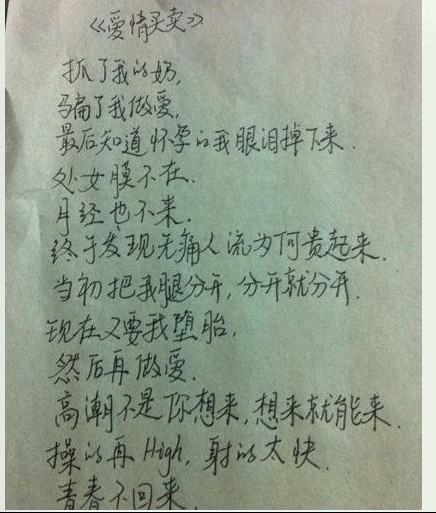 《爱情买卖》
抓了我的奶,
骗了我做爱,
最后知道怀孕的我眼泪掉下来.
处女膜不在.
月经也不来.
终于发现无痛人流为何贵起来.
当初把我腿分开,分开就分开.
现在又要我堕胎,
然后再做爱.
高潮不是你想来,想来就能来.
操的再High,射的太快.
青春不回来.